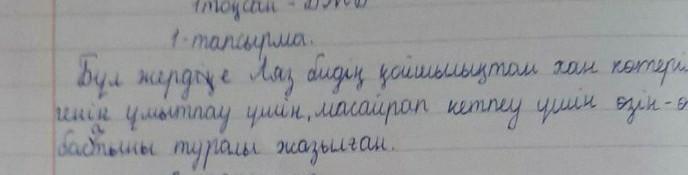 1 тоқсан - БЖБ
1-тапсырма.
Бұл жердің е Аяз бидің қойшылықтан хан көтеріл
генін ұмытпау үшін, масайрап кетпеу үшін өзін-ө
басқаны туралы жазылған.